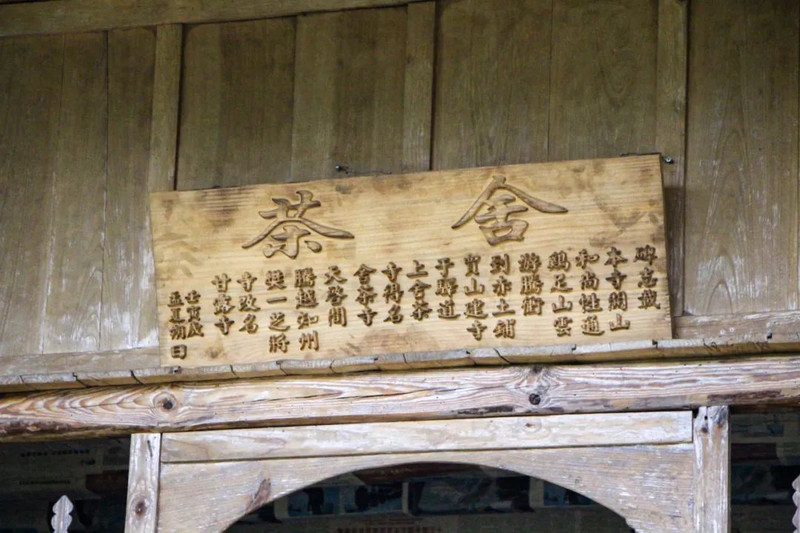 舍茶
碑志載
本寺開山
和尚性通
鷄足山雲
游騰衝
到赤土鋪
買山建寺
于驛道
上舍茶
寺得名
舍茶寺
天啓間
騰越知州
樊一芝將
寺改名
甘露寺
壬寅歲
孟夏朔日